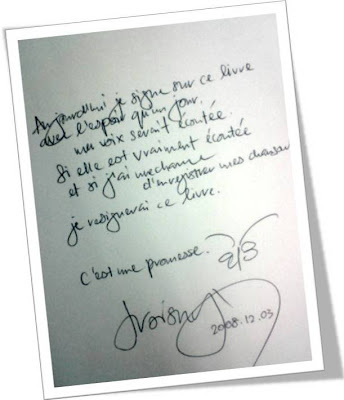 Aujourd'hui je signe sur ce livre
avec l'espoir qu'un jour,
ma voix serait écoutée.
Si elle est vraiment écoutée
et si j'ai une chance
d'enregistrer mes chansons
je resignerai ce livre.
C'est une promesse.
2008.12.03